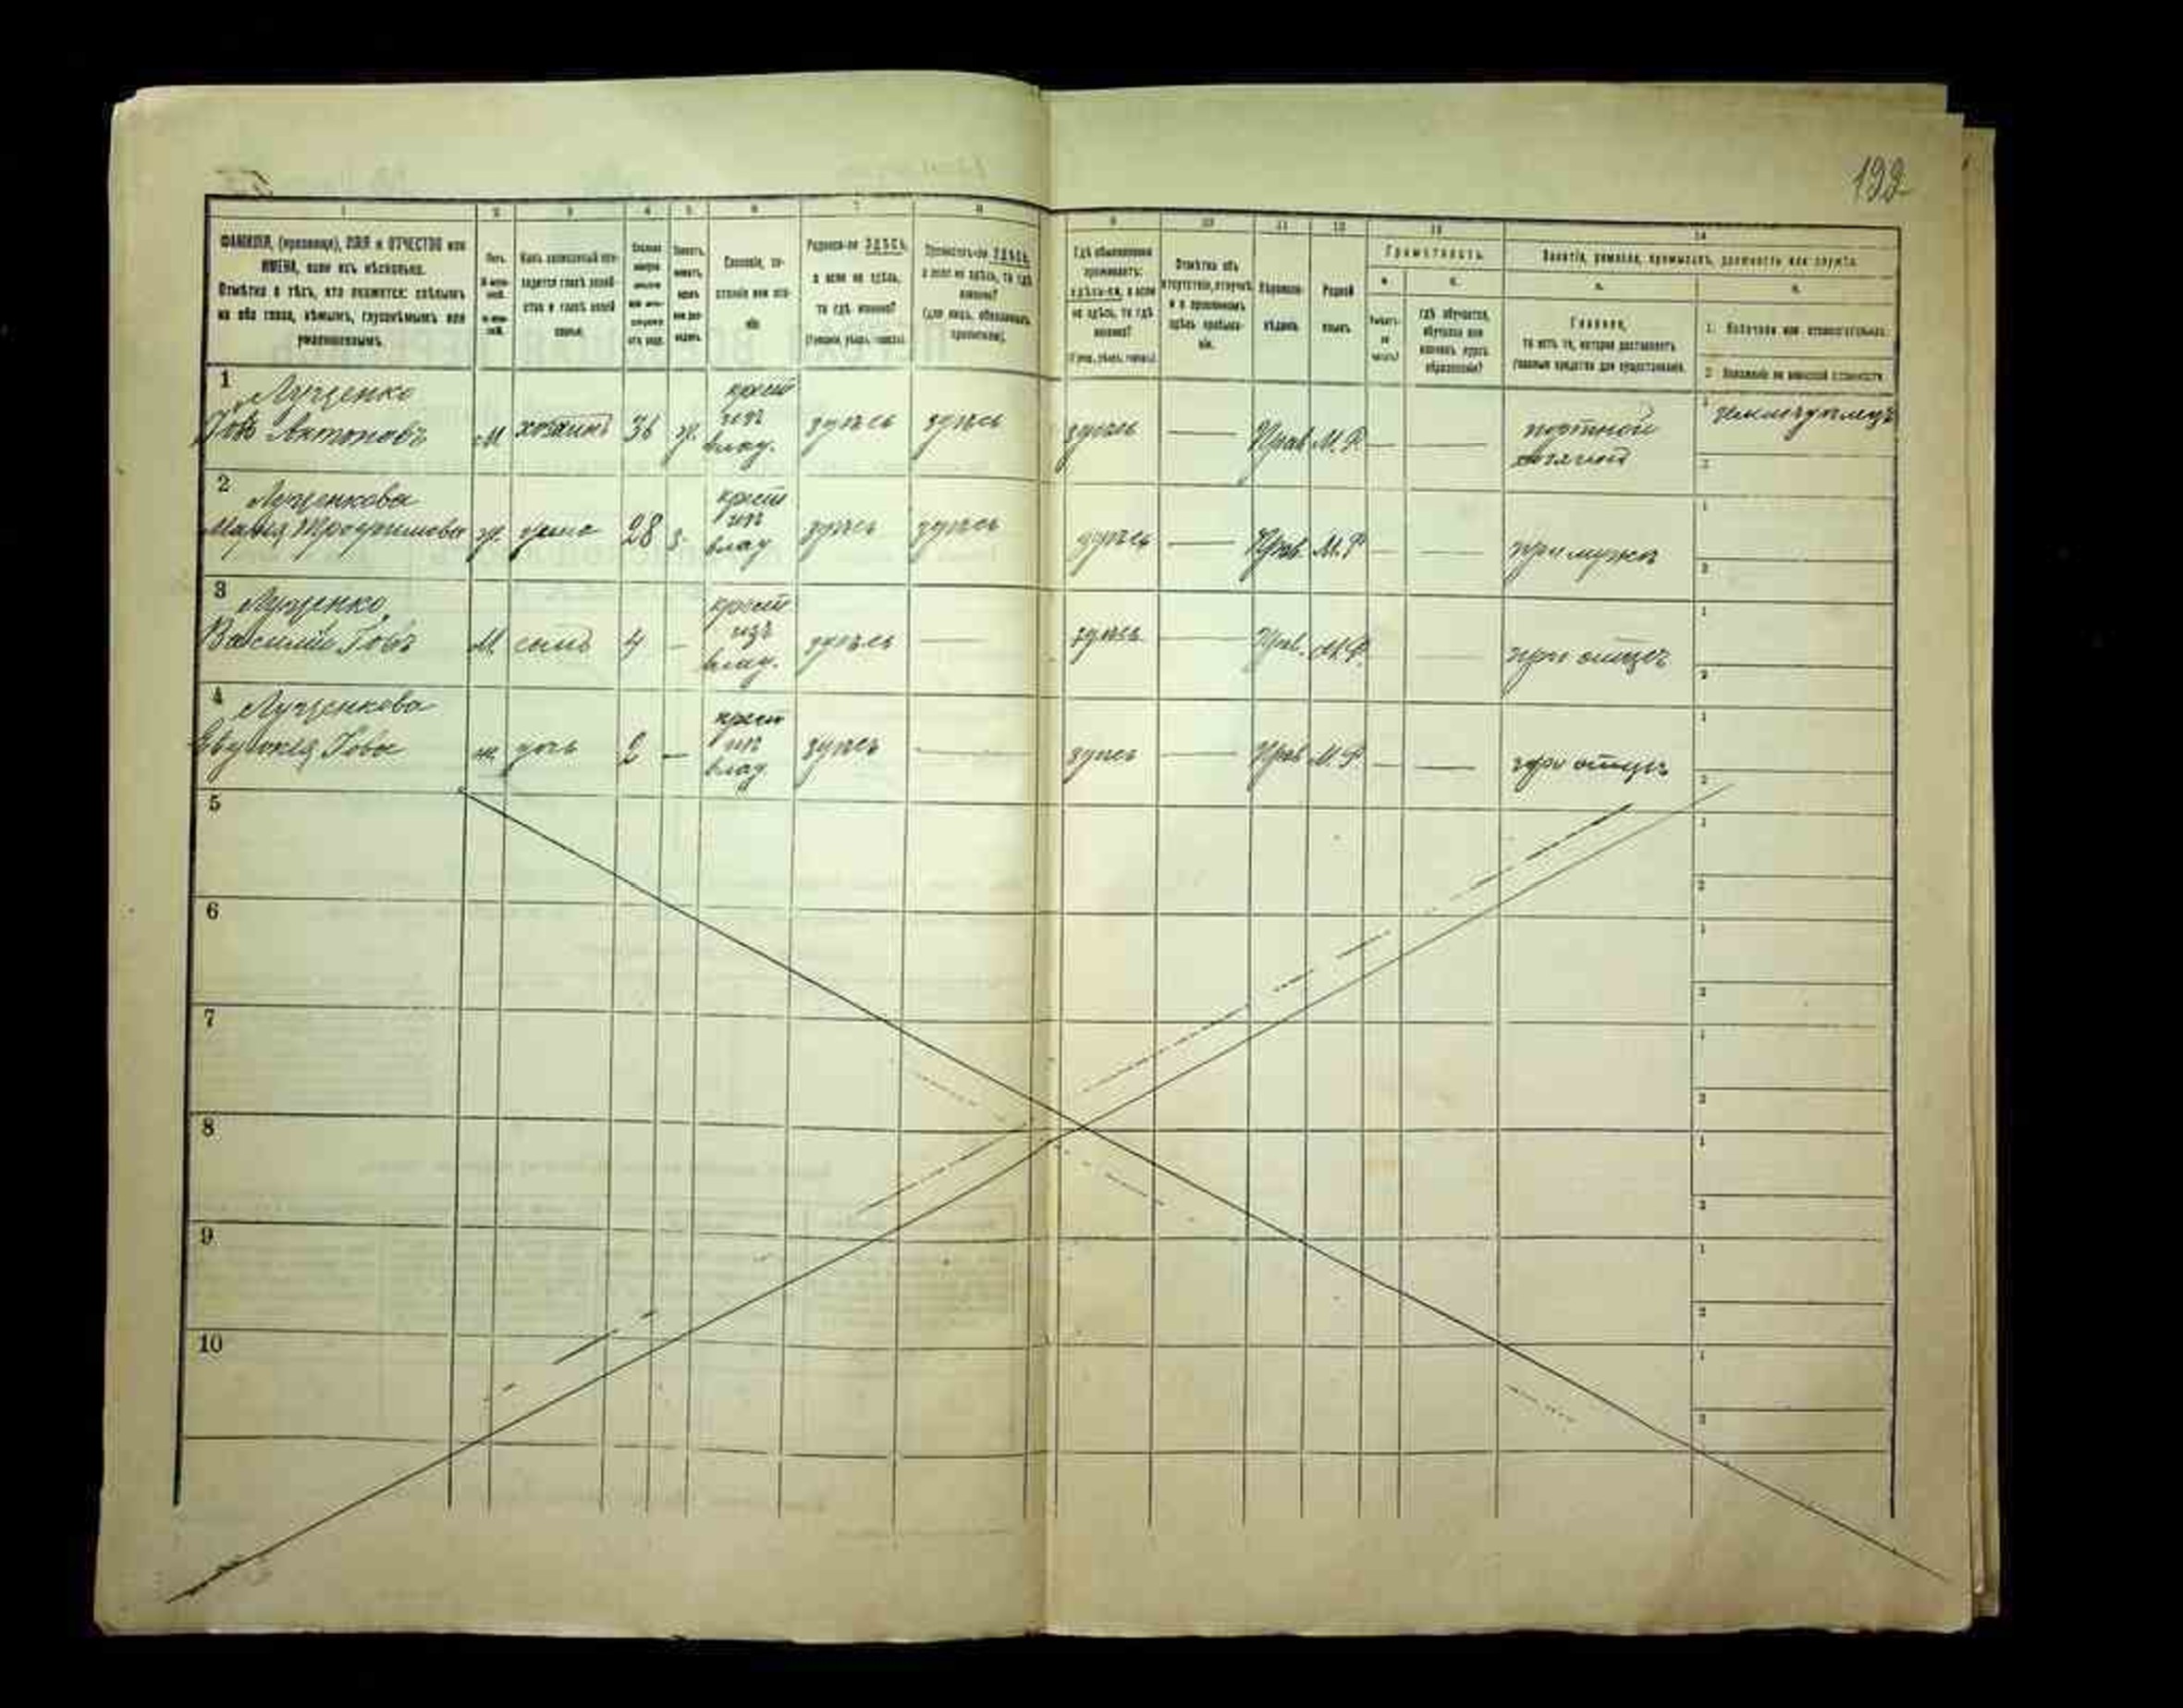 192
1 2 3 4 5 6 7 8 9 10 11 12 13 14
ФАМИЛІЯ, (прозвище), ИМЯ и ОТЧЕСТВО или
ИМЕНА, если ихъ нѣсколько.
Отмѣтка о тѣхъ, кто окажется: слѣпымъ
на оба глаза, нѣмымъ, глухонѣмымъ или
умалишеннымъ.
Полъ.
Родился-ли ЗДѢСЬ,
а если не здѣсь,
то гдѣ именно?
(Губернія, уѣздъ, городъ).
Приписанъ-ли ЗДѢСЬ,
а если не здѣсь, то гдѣ
именно?
(для лицъ, обязанныхъ
припиской).
Гдѣ обыкновенно
проживаетъ:
здѣсь-ли, а если
не здѣсь, то гдѣ
именно?
(Губ., уѣздъ, городъ).
Отмѣтка объ
отсутствіи, отлучкѣ
и о временномъ
здѣсь пребыва-
ніи.
Вѣроиспо-
вѣданіе.
Родной
языкъ.
Грамотность.
а. б.
Умѣетъ-
ли
читать?
гдѣ обучается,
обучался или
кончилъ курсъ
образованія?
Занятіе, ремесло, промыселъ, должность или служба.
Главное,
то есть то, которое доставляетъ
главныя средства для существованія.
1. Побочное или вспомогательное.
2. Положеніе по воинской повинности.
1 Луценко крест 1 земледѣлецъ
Іовъ Антоновъ М хозяинъ 36 ж. изъ влад. здѣсь здѣсь здѣсь — Прав М.Р. — — портной
хозяинъ 2
2 Луценкова крест 1
Марія Трофимова ж. жена 28 з. изъ влад здѣсь здѣсь здѣсь — Прав. М.Р. — — при мужѣ
2
3 Луценко крест 1
Василій Іовъ М. сынъ 4 — изъ влад. здѣсь — здѣсь — Прав. М.Р. — при отцѣ
2
4 Луценкова крест 1
Евдокія Іова ж. дочь 2 — изъ влад здѣсь — здѣсь — Прав М.Р. — — при отцѣ
2
5 1
2
6 1
2
7 1
2
8 1
2
9 1
2
10 1
2